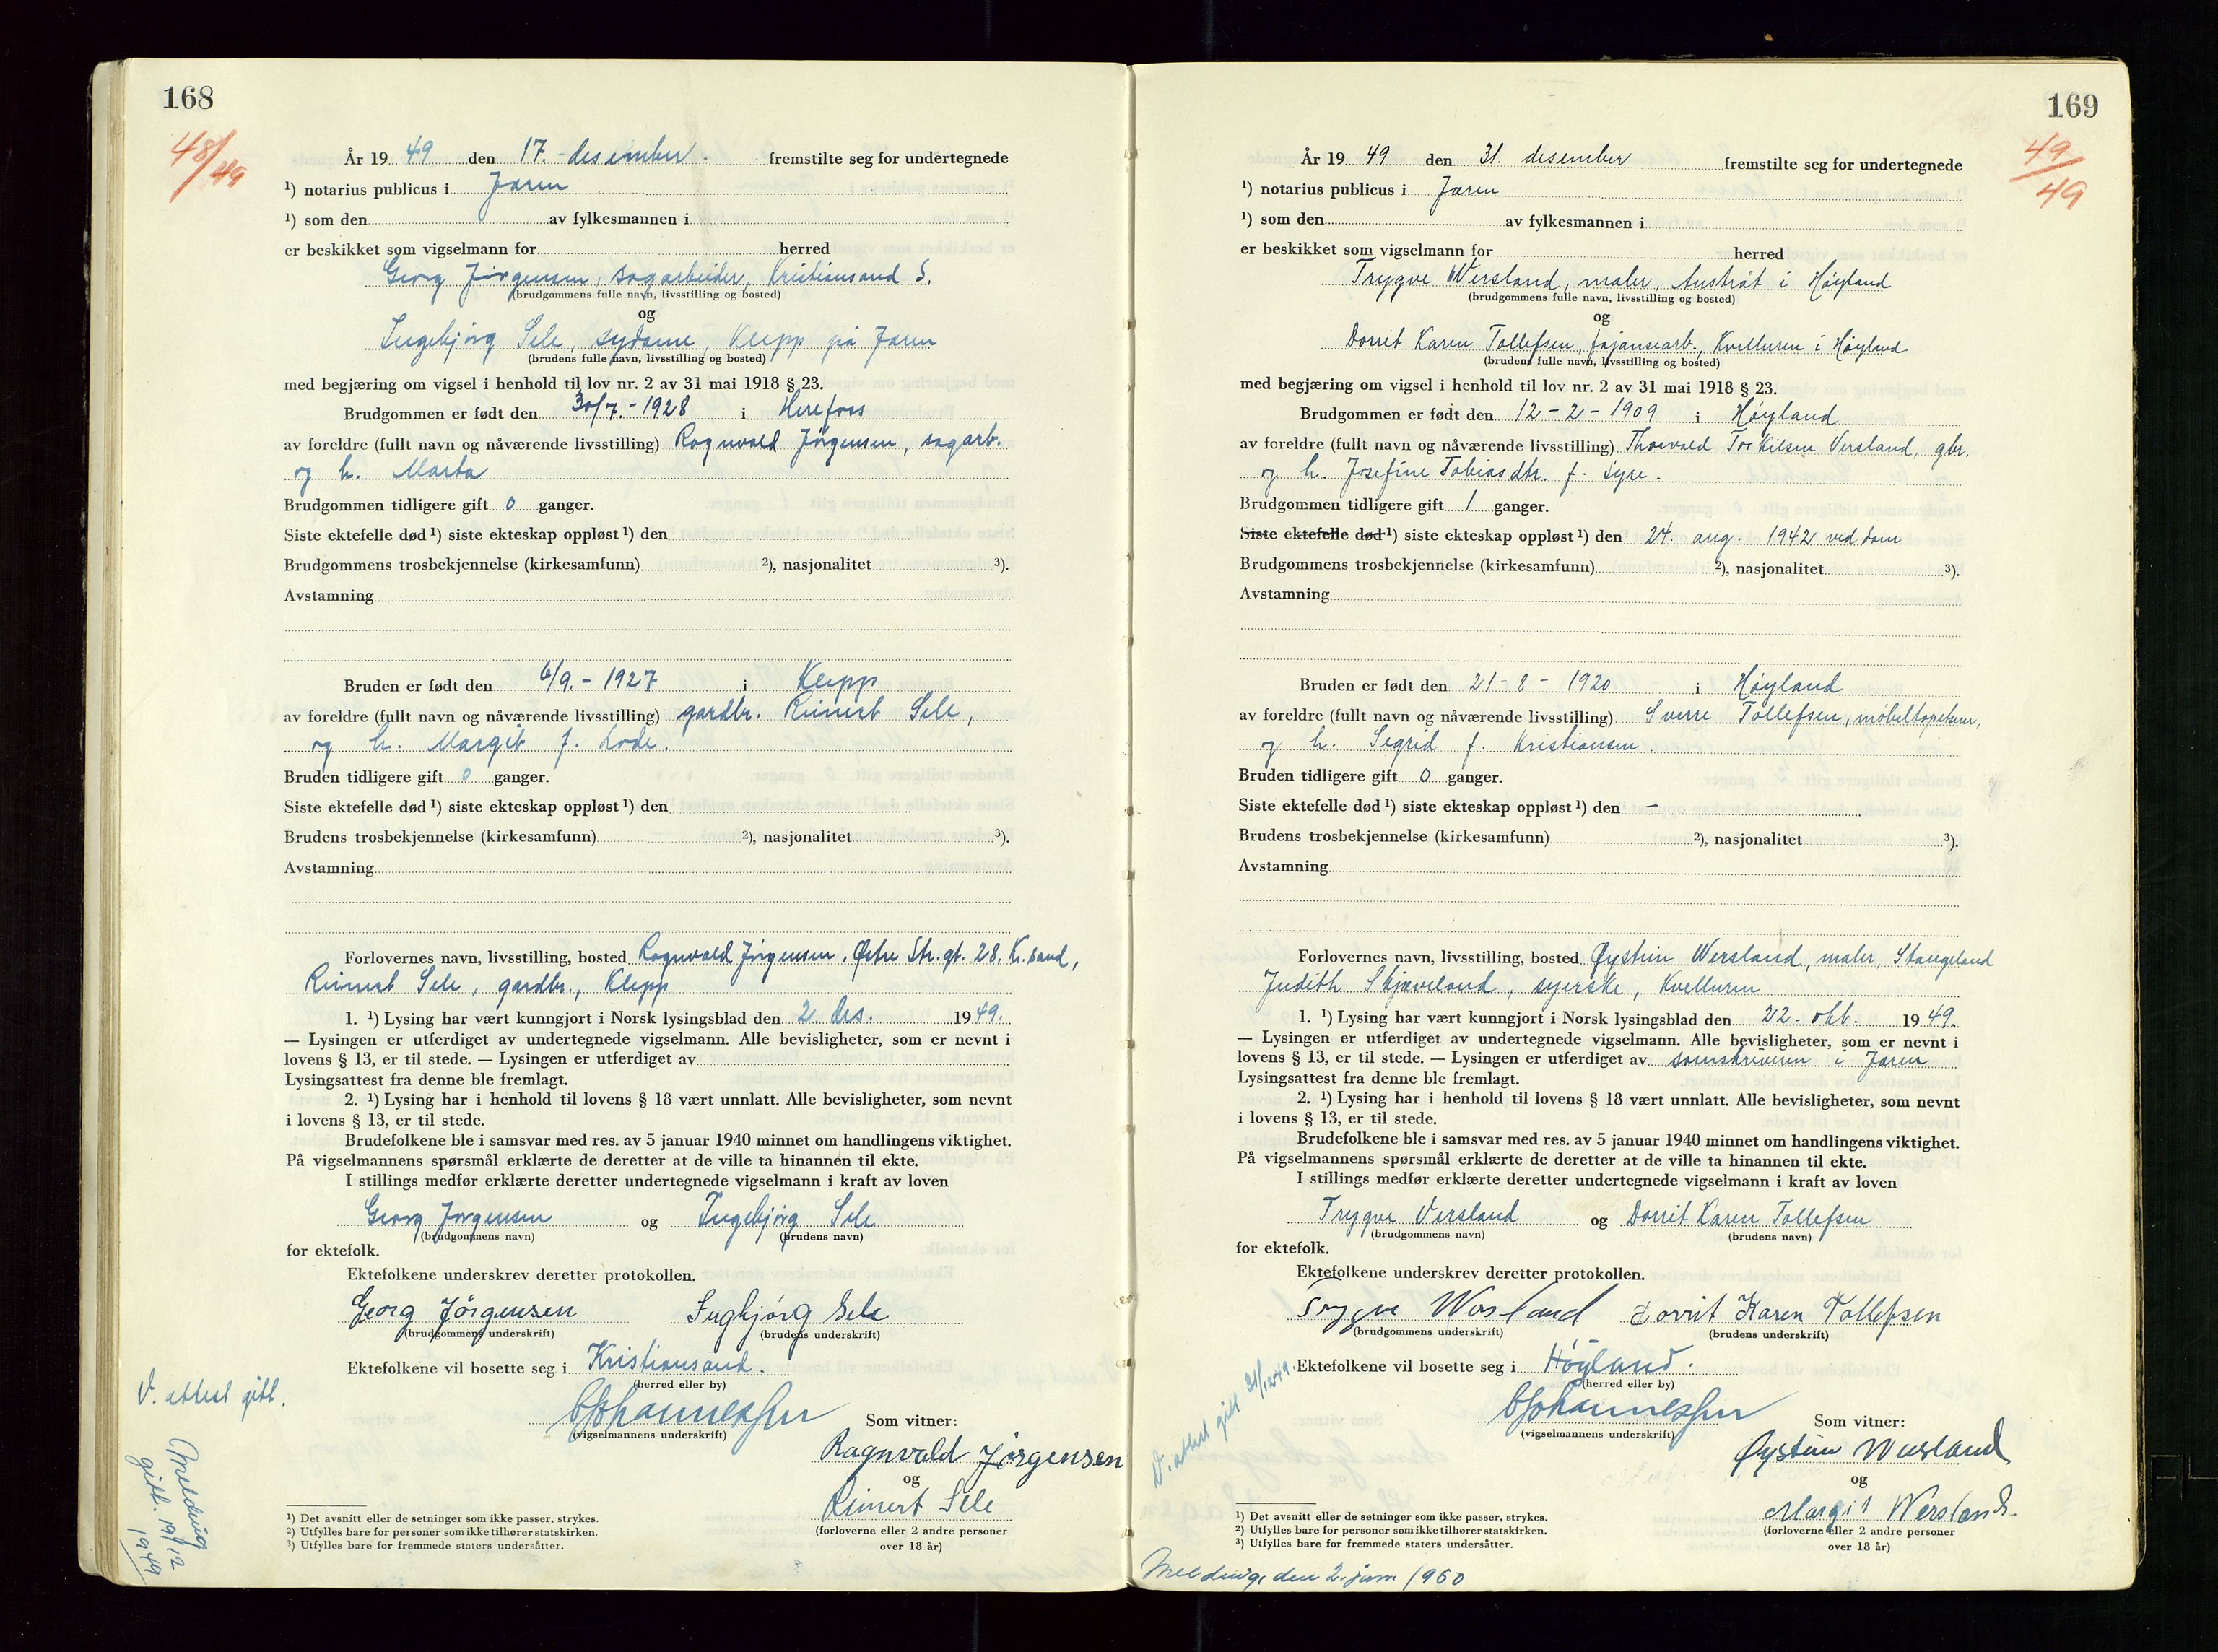 168
48/49
År 19 49 den 17. desember. fremstilte seg for undertegnede
¹) notarius publicus i Jæren
¹) som den av fylkesmannen i
er beskikket som vigselmann for herred
Georg Jørgensen, sagarbeider, Kristiansand S.
(brudgommens fulle navn, livsstilling og bosted)
og
Ingebjørg Sele, sydame, Klepp på Jæren
(brudens fulle navn, livsstilling og bosted)
med begjæring om vigsel i henhold til lov nr. 2 av 31 mai 1918 § 23.
Brudgommen er født den 30/7.-1928 i Herefoss
av foreldre (fullt navn og nåværende livsstilling) Ragnvald Jørgensen, sagarb.
og h. Marta
Brudgommen tidligere gift 0 ganger.
Siste ektefelle død ¹) siste ekteskap oppløst ¹) den
Brudgommens trosbekjennelse (kirkesamfunn) ²), nasjonalitet ³).
Avstamning
Bruden er født den 6/9.-1927 i Klepp
av foreldre (fullt navn og nåværende livsstilling) gardbr. Reinert Sele,
og h. Margit f. Lode.
Bruden tidligere gift 0 ganger.
Siste ektefelle død ¹) siste ekteskap oppløst ¹) den
Brudens trosbekjennelse (kirkesamfunn) ²), nasjonalitet ³).
Avstamning
Forlovernes navn, livsstilling, bosted Ragnvald Jørgensen, Østre Str.gt. 28, Kr.sand,
Reinert Sele, gardbr., Klepp
1. ¹) Lysing har vært kunngjort i Norsk lysingsblad den 2. des. 1949.
— Lysingen er utferdiget av undertegnede vigselmann. Alle bevisligheter, som er nevnt i
lovens § 13, er til stede. — Lysingen er utferdiget av
Lysingsattest fra denne ble fremlagt.
2. ¹) Lysing har i henhold til lovens § 18 vært unnlatt. Alle bevisligheter, som nevnt
i lovens § 13, er til stede.
Brudefolkene ble i samsvar med res. av 5 januar 1940 minnet om handlingens viktighet.
På vigselmannens spørsmål erklærte de deretter at de ville ta hinannen til ekte.
I stillings medfør erklærte deretter undertegnede vigselmann i kraft av loven
Georg Jørgensen og Ingebjørg Sele
(brudgommens navn) (brudens navn)
for ektefolk.
Ektefolkene underskrev deretter protokollen.
Georg Jörgensen Ingbjørg Sele
(brudgommens underskrift) (brudens underskrift)
Ektefolkene vil bosette seg i Kristiansand.
(herred eller by)
V. attest gitt.
Johannessen
(vigselmannens underskrift)
Som vitner:
Ragnvald Jørgensen
og
Reinert Sele
(forloverne eller 2 andre personer
over 18 år)
Melding
gitt. 19/12
1949
¹) Det avsnitt eller de setninger som ikke passer, strykes.
²) Utfylles bare for personer som ikke tilhører statskirken.
³) Utfylles bare for fremmede staters undersåtter.
169
49/49
År 19 49 den 31. desember fremstilte seg for undertegnede
¹) notarius publicus i Jæren
¹) som den av fylkesmannen i
er beskikket som vigselmann for herred
Trygve Wersland, maler, Austråt i Høyland
(brudgommens fulle navn, livsstilling og bosted)
og
Dorrit Karen Tollefsen, fajansearb., Kvelluren i Høyland
(brudens fulle navn, livsstilling og bosted)
med begjæring om vigsel i henhold til lov nr. 2 av 31 mai 1918 § 23.
Brudgommen er født den 12-2-1909 i Høyland
av foreldre (fullt navn og nåværende livsstilling) Thorvald Torkilsen Versland, gbr.
og h. Josefine Tobiasdtr. f. Syre.
Brudgommen tidligere gift 1 ganger.
Siste ektefelle død ¹) siste ekteskap oppløst ¹) den 24. aug. 1942 ved dom
Brudgommens trosbekjennelse (kirkesamfunn) ²), nasjonalitet ³).
Avstamning
Bruden er født den 21-8-1920 i Høyland
av foreldre (fullt navn og nåværende livsstilling) Sverre Tollefsen, møbeltapetserer,
og h. Segrid f. Kristiansen.
Bruden tidligere gift 0 ganger.
Siste ektefelle død ¹) siste ekteskap oppløst ¹) den —
Brudens trosbekjennelse (kirkesamfunn) ²), nasjonalitet ³).
Avstamning
Forlovernes navn, livsstilling, bosted Øystein Wersland, maler, Stangeland
Judith Skjæveland, syerske, Kvelluren
1. ¹) Lysing har vært kunngjort i Norsk lysingsblad den 22. okt. 1949.
— Lysingen er utferdiget av undertegnede vigselmann. Alle bevisligheter, som er nevnt i
lovens § 13, er til stede. — Lysingen er utferdiget av sorenskriveren i Jæren
Lysingsattest fra denne ble fremlagt.
2. ¹) Lysing har i henhold til lovens § 18 vært unnlatt. Alle bevisligheter, som nevnt
i lovens § 13, er til stede.
Brudefolkene ble i samsvar med res. av 5 januar 1940 minnet om handlingens viktighet.
På vigselmannens spørsmål erklærte de deretter at de ville ta hinannen til ekte.
I stillings medfør erklærte deretter undertegnede vigselmann i kraft av loven
Trygve Versland og Dorrit Karen Tollefsen
(brudgommens navn) (brudens navn)
for ektefolk.
Ektefolkene underskrev deretter protokollen.
Trygve Wersland Dorrit Karen Tollefsen
(brudgommens underskrift) (brudens underskrift)
Ektefolkene vil bosette seg i Høyland.
(herred eller by)
V. attest gitt 31/12 49.
Johannessen
(vigselmannens underskrift)
Som vitner:
Øystein Wersland
og
Margit Wersland.
(forloverne eller 2 andre personer
over 18 år)
¹) Det avsnitt eller de setninger som ikke passer, strykes.
²) Utfylles bare for personer som ikke tilhører statskirken.
³) Utfylles bare for fremmede staters undersåtter.
Melding den 2. jan 1950